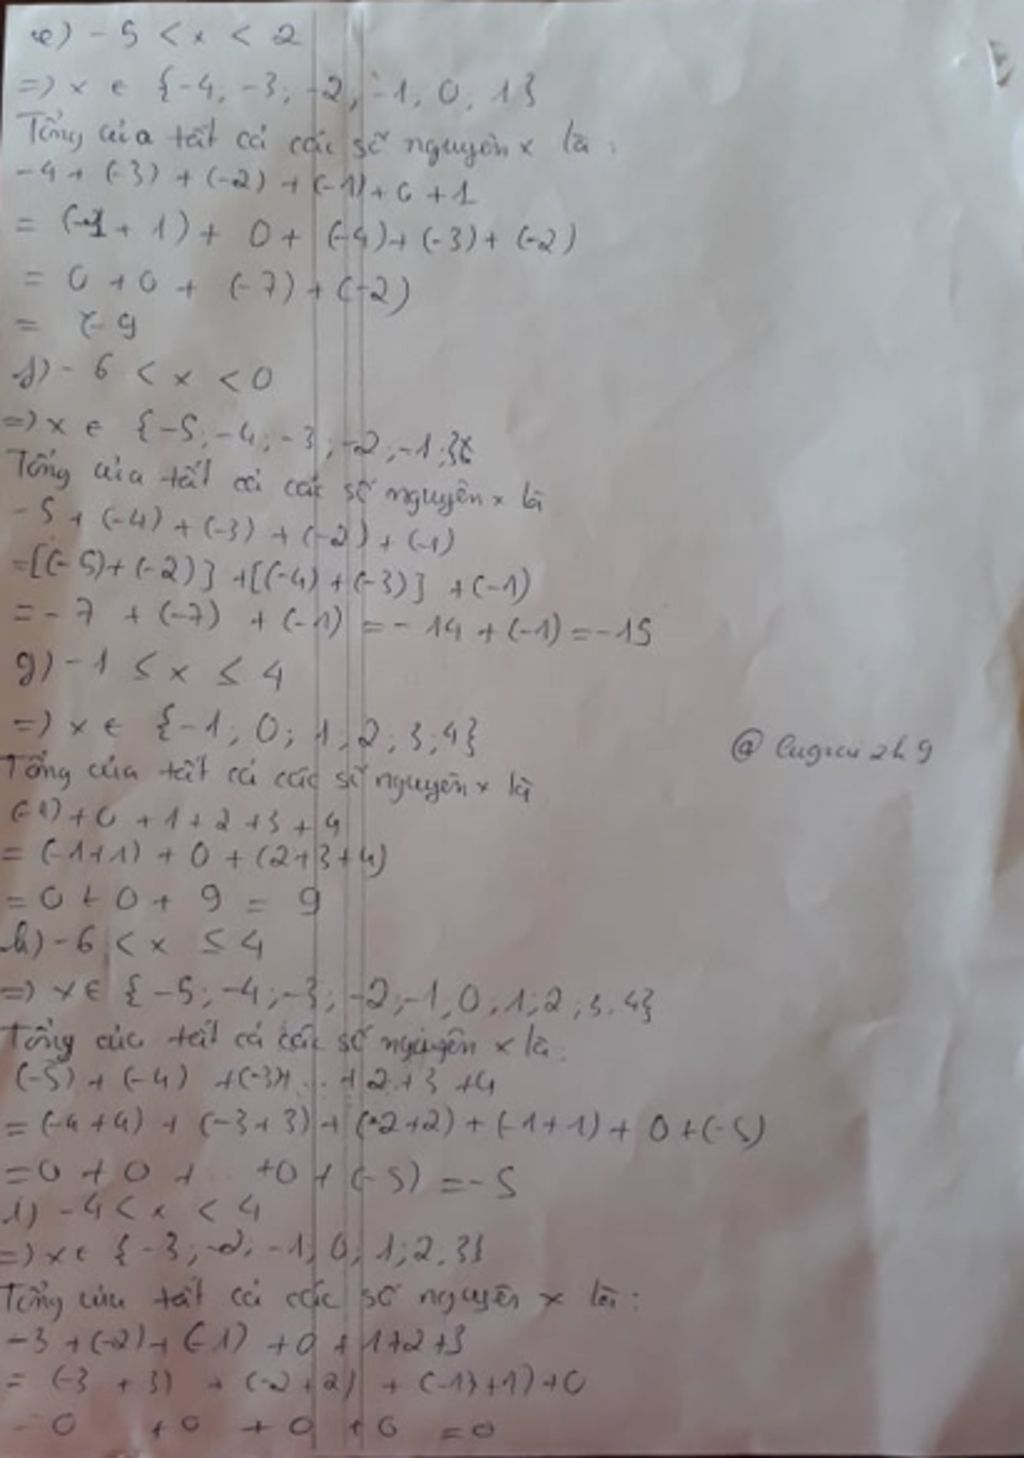 e) - 5 < x < 2
=> x ∈ {-4; -3; -2; -1; 0; 1}
Tổng của tất cả các số nguyên x là :
-4 + (-3) + (-2) + (-1) + 0 + 1
= (-1 + 1) + 0 + (-4) + (-3) + (-2)
= 0 + 0 + (-7) + (-2)
= -9
f) - 6 < x < 0
=> x ∈ {-5; -4; -3; -2; -1;}
Tổng của tất cả các số nguyên x là
-5 + (-4) + (-3) + (-2) + (-1)
=[(-5)+(-2)] +[(-4)+(-3)] +(-1)
= - 7 + (-7) + (-1) = - 14 + (-1) = -15
g) -1 ≤ x ≤ 4
=> x ∈ {-1; 0; 1; 2; 3; 4}
Tổng của tất cả các số nguyên x là
(-1) + 0 + 1 + 2 + 3 + 4
= (-1+1) + 0 + (2+3+4)
= 0 + 0 + 9 = 9
h) -6 < x ≤ 4
=> x ∈ {-5; -4; -3; -2; -1; 0; 1; 2; 3; 4}
Tổng các tất cả các số nguyên x là:
(-5) + (-4) + (-3)+ ... + 2 + 3 + 4
= (-4+4) + (-3+3) + (-2+2) + (-1+1) + 0 + (-5)
= 0 + 0 + ... +0 + (-5) = -5
i) -4 < x < 4
=> x ∈ {-3; -2; -1; 0; 1; 2; 3}
Tổng của tất cả các số nguyên x là :
-3 + (-2) + (-1) + 0 + 1+2+3
= (-3 + 3) + (-2+2) + (-1)+1) + 0
= 0 + 0 + 0 + 0 = 0